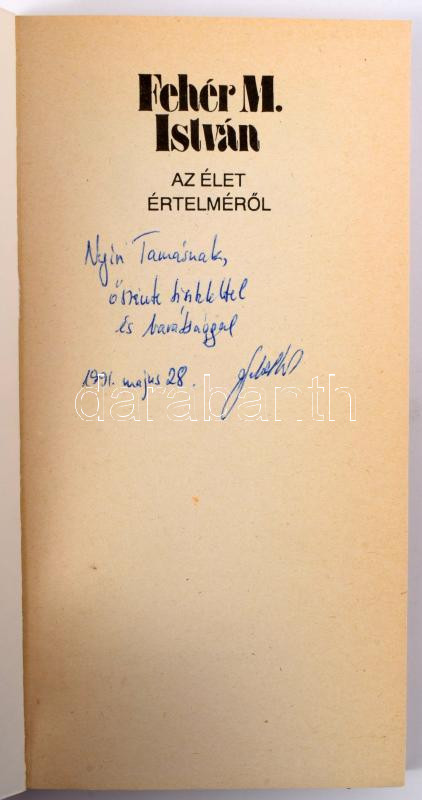 Fehér M.
István
AZ ÉLET
ÉRTELMÉRŐL
Nyíri Tamásnak,
őszinte tisztelettel
és barátsággal
1991. május 28.
darabanth